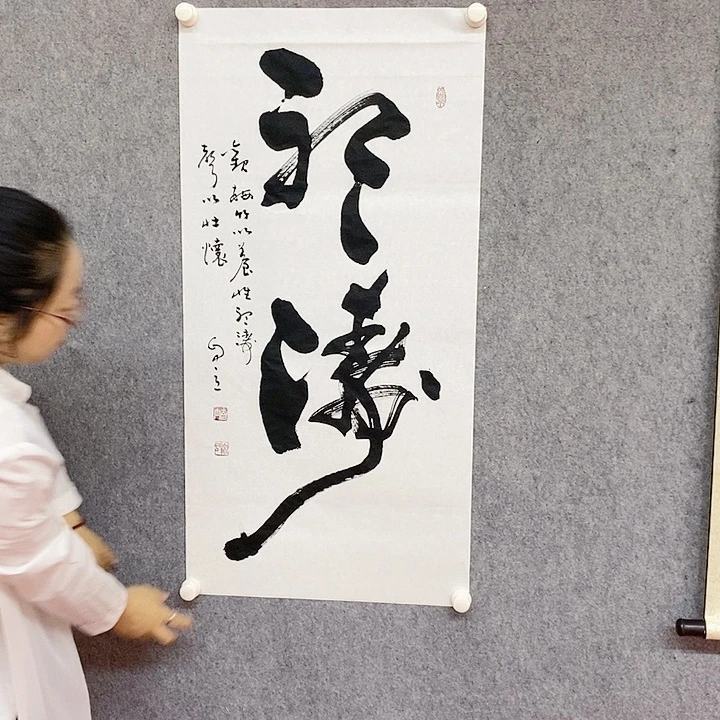 聽濤
觀梅竹以養性聽濤
聲以壯懷